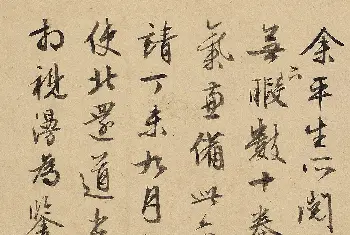 余平生所閱
無暇數十卷
氣直備此
請丁未九月
使北還道
相視漫為鑒